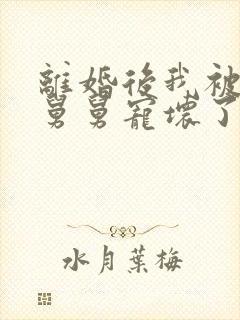 離婚後我被
舅舅寵壞了
水月葉梅